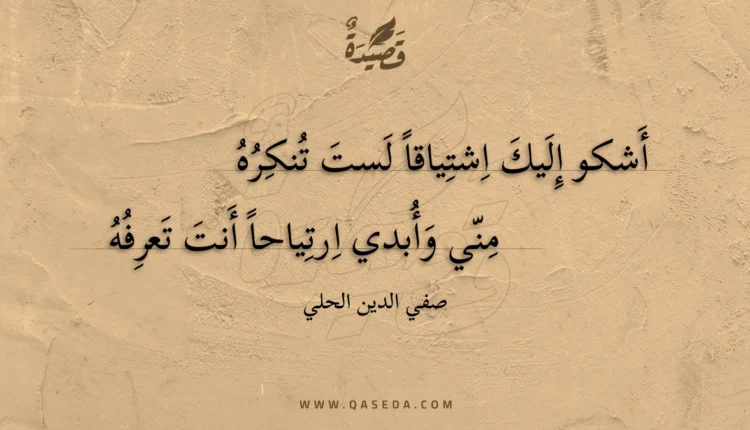 قَصِيْدَةٌ
أَشكو إِلَيكَ اِشتِياقاً لَستَ تُنكِرُهُ
مِنّي وَأُبدي اِرتِياحاً أَنتَ تَعرِفُهُ
صفي الدين الحلي
WWW.QASEDA.COM